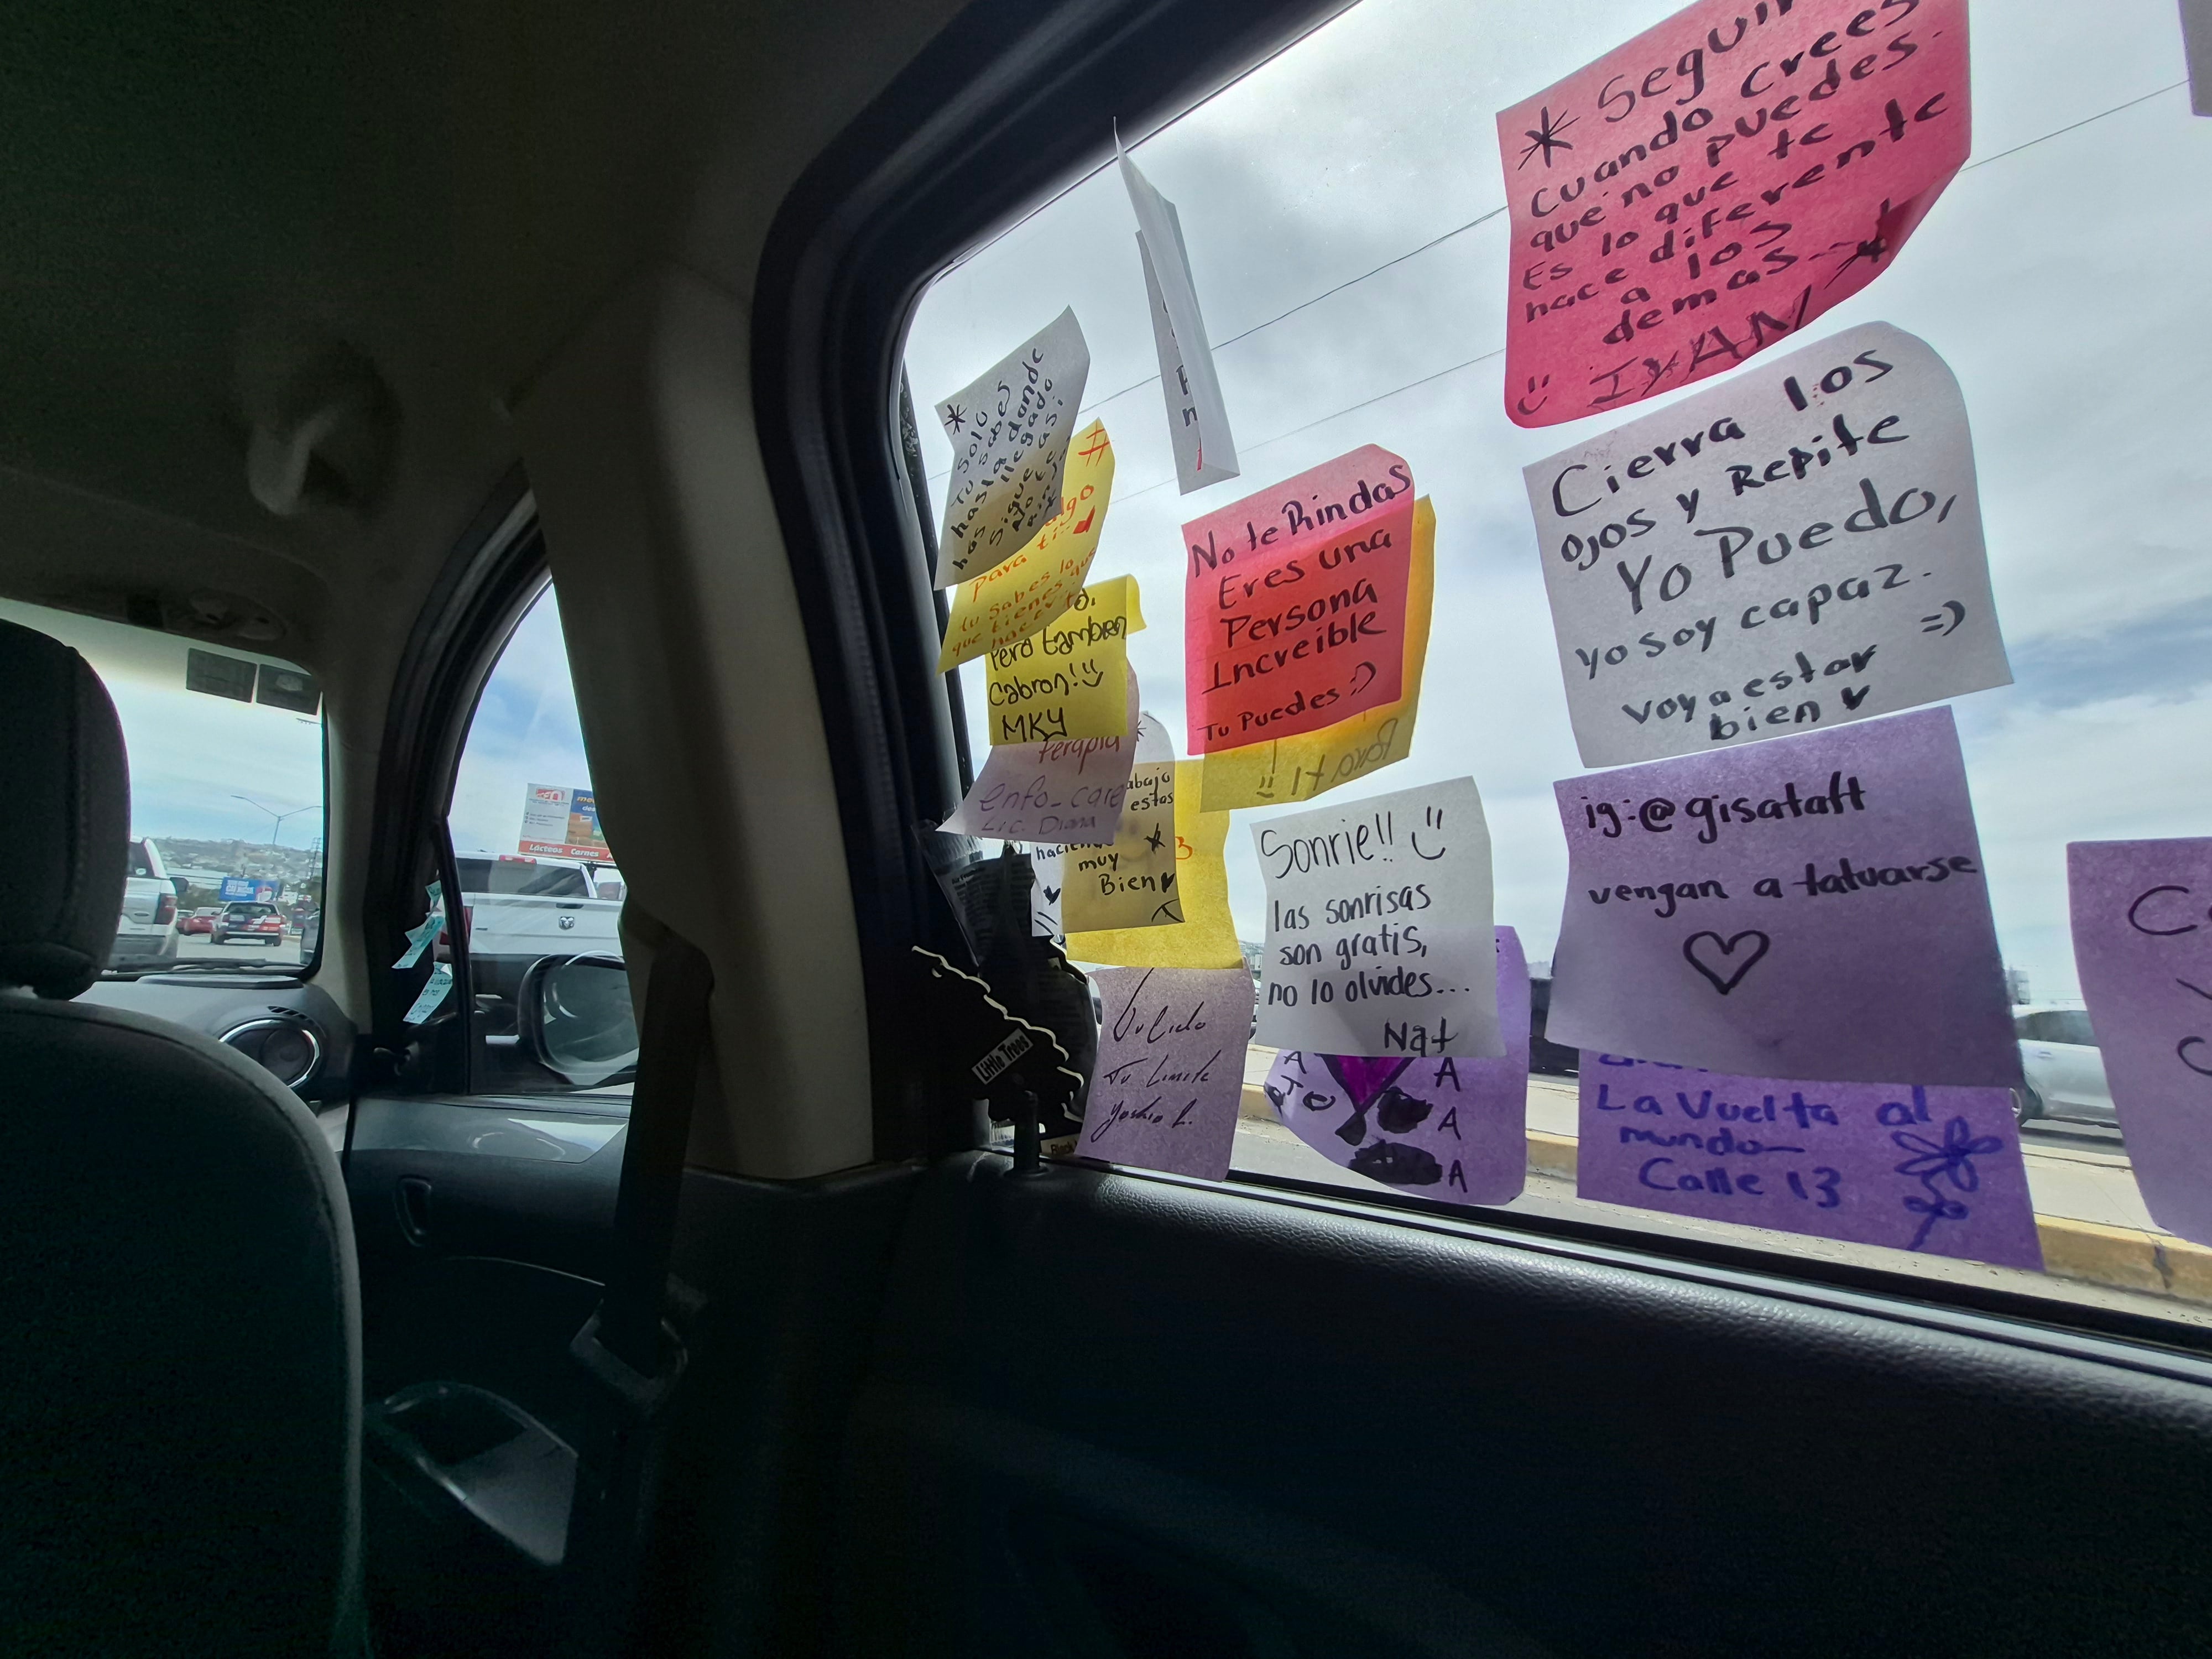 * Seguir
cuando crees
que no puedes.
Es lo que te
hace diferente
a los
demas...*
IVAN
Cierra los
ojos y Repite
Yo Puedo,
yo soy capaz.
voy a estar =)
bien
ig:@gisataft
vengan a tatuarse
La Vuelta al
mundo-
Calle 13
No te Rindas
Eres una
Persona
Increible
Tu Puedes :)
Para ti
Sonrie!!
las sonrisas
son gratis,
no lo olvides...
Nat
A
A
A
*
Tu solo
sabes
hasta donde
has llegado
sigue
#
algo
para ti
tu sabes lo
que tienes que
hacer
Pero tambien
Cabron!
MKY
terapia
enfo_care
Lic. Diana
abajo
estas
haciendo
muy
Bien
Tu Limite
Little Trees
Lácteos Carnes